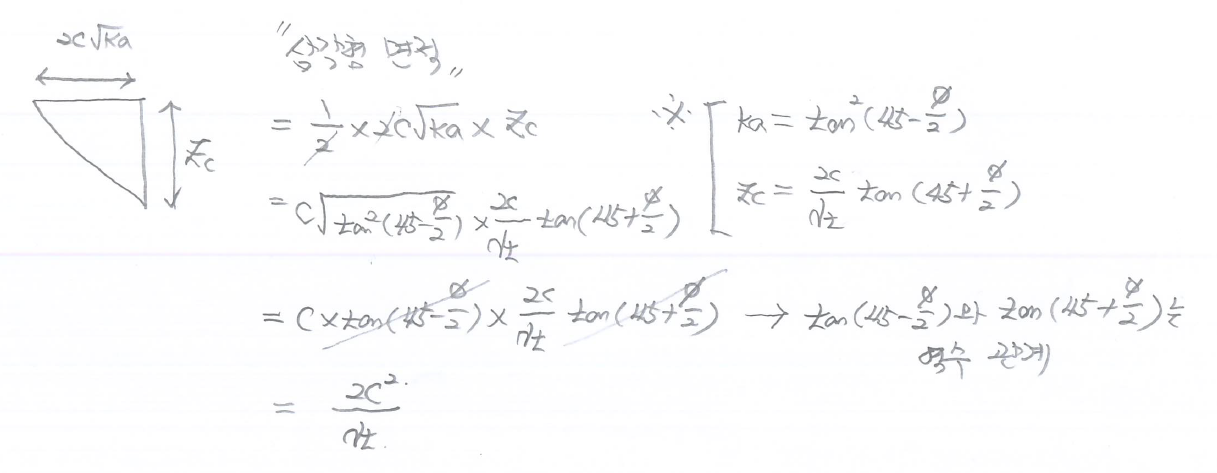 2C√Ka
Zc
"삼각형 면적"
= 1/2 × 2C√Ka × Zc
= C√tan²(45-ø/2) × 2C/γt tan(45+ø/2)
※ Ka = tan²(45-ø/2)
Zc = 2C/γt tan(45+ø/2)
= C × tan(45-ø/2) × 2C/γt tan(45+ø/2) → tan(45-ø/2)와 tan(45+ø/2)는
역수 관계
= 2C²/γt